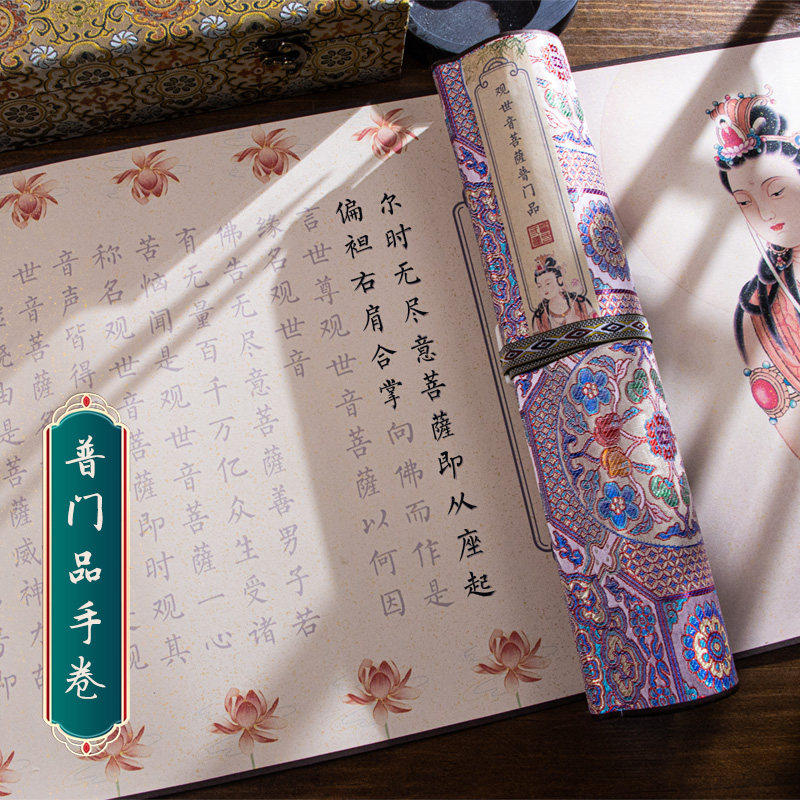 观世音菩薩普门品
尔时无尽意菩薩即从座起
偏袒右肩合掌向佛而作是
言世尊观世音菩薩以何因
缘名观世音
佛告无尽意菩薩善男子若
有无量百千万亿众生受诸
苦恼闻是观世音菩薩一心
称名观世音菩薩即时观其
音声皆得
世音菩薩名
由是菩薩威神
即
普门品手卷